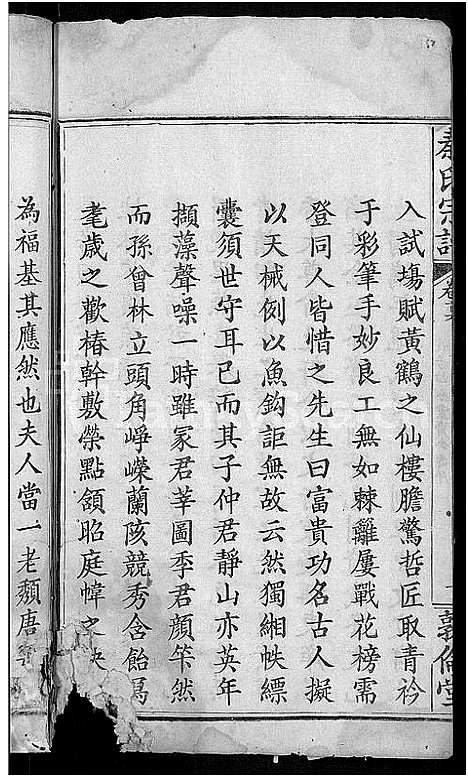 秦氏宗譜
卷之
敦倫堂
入試塲賦黃鶴之仙樓膽驚哲匠取青衿
于彩筆手妙良工無如棘籬屢戰花榜需
登同人皆惜之先生曰富貴功名古人擬
以天械例以魚鈎詎無故云然獨緗帙縹
囊須世守耳已而其子仲君靜山亦英年
擷藻聲噪一時雖冢君莘圖季君顔筞然
而孫曾林立頭角崢嶸蘭陔競秀含飴爲
耄歲之歡椿幹敷榮點頷昭庭幃之
為福基其應然也夫人當一老頽唐